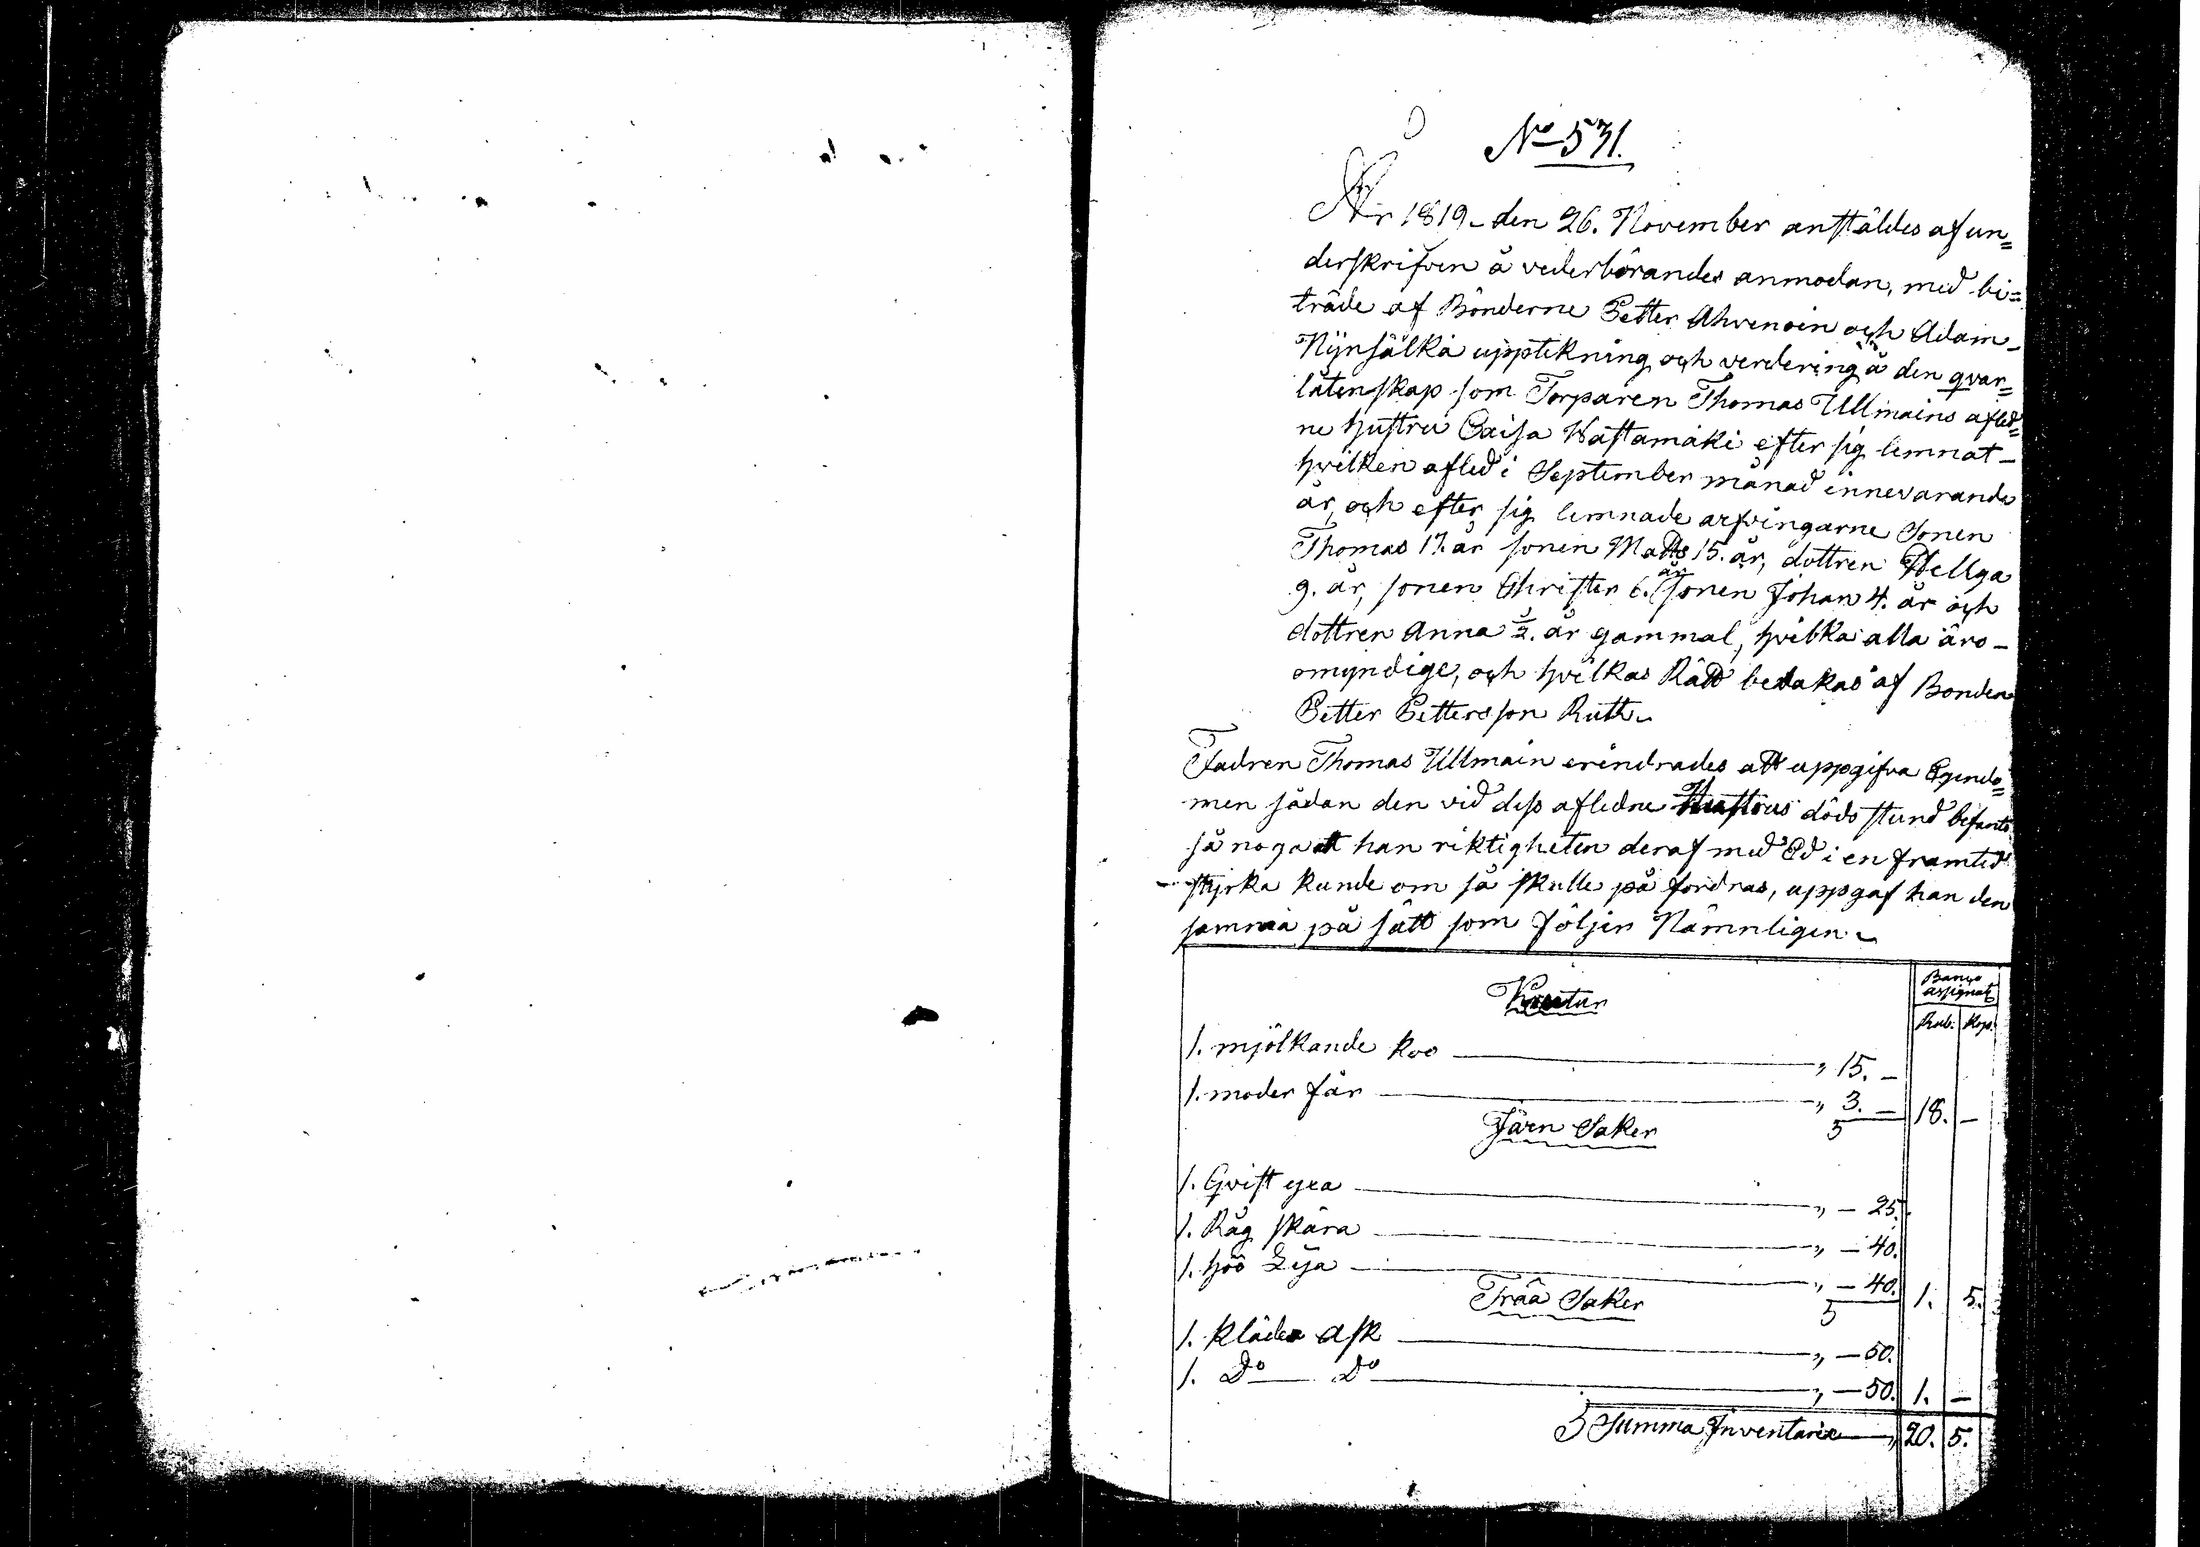 No 531.
År 1819. den 26. November anstäldes af un=
derskrifven å vederbörandes anmodan, med bi=
träde af Bönderne Petter Ahvenoin och Adam
Nijnsälkä upptekning och verdering å den qvar=
låtenskap som Torparen Thomas Ullmains afled=
ne hustru Caisa Hastamäki efter sig lemnat _
hvilken afled i September månad innevarande
år, och efter sig lemnade arfvingarne Sonen
Thomas 17. år sonen Matts 15. år, dottren Hellga
9. år, sonen Christer 6. år sonen Johan 4. år och
dottren Anna ½. år gammal, hvilka alla äro _
omyndige, och hvilkas Rätt bevakas af Bonden
Petter Pettersson Ruth.
Fadren Thomas Ullmain erindrades att uppgifva Egendo=
men sådan den vid dess afledne Hustrus döds stund befants
så noga att han riktigheten deraf med Ed i en framtid
styrka kunde om så skulle på fordras, uppgaf han den
samma på sätt som följer Nämnligen.
Banco assignat
Kreatur Rub. Kop.
1. mjölkande koo „ 15. _
1. moder får „ 3. _ 18. _
Järn Saker
1. Qvist yxa „ _ 25.
1. Råg skära „ _ 40.
1. höö Lija „ _ 40. 1. 5.
Trää Saker
1. kläder ask „ _ 50.
1. Do Do „ _ 50. 1. _
Summa Inventarie „ 20. 5.